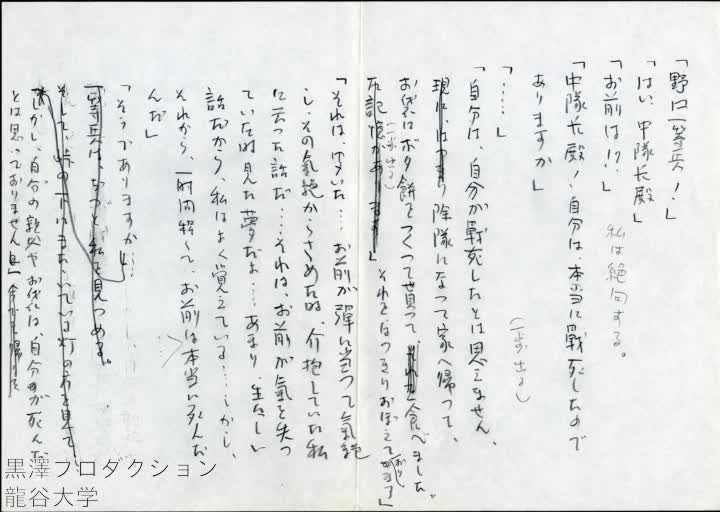 「野口一等兵！」
「はい、中隊長殿」
「お前は！？　私は絶句する。
「中隊長殿！自分は、本当に戦死したので
ありますか」
「……」　（一歩出る）
「自分は、自分が戦死したとは思えません、
現に、はっきり除隊になって家へ帰って、
お袋に（一歩出る）ボタ餅をつくって貰って、それを食べました。
た記憶があります」それをはっきりおぼえております」
「それは、きいた…お前が弾に当って気絶
し、その気絶からさめた時、介抱していた私
に云った話だ…それは、お前が気を失っ
ていた時見た夢だよ……あまり、生々しい
話だから、私はよく覚えている……しかし、
それから、一時間程して、お前は本当に死んだ
んだ」
「そうでありますか…」
一等兵は、じっと私を見つめる。
そして、峠の下にまたたいている灯の方を見て
しかし、自分の親父やお袋は、自分が死んだ
とは思っておりません
黒澤プロダクション
龍谷大学